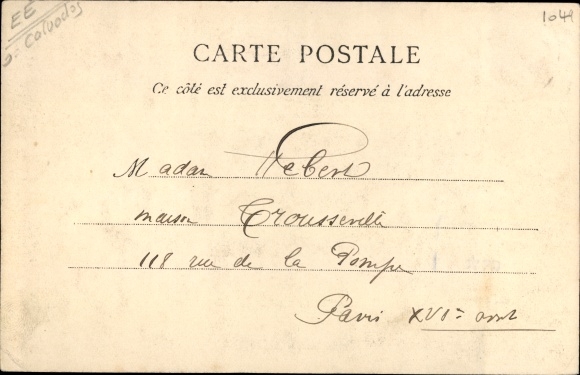 EE
Calvados
1049
CARTE POSTALE
Ce côté est exclusivement réservé à l'adresse
Madam Hebert
maison Trousseville
118 rue de la Pompe
Paris XVIe arrt